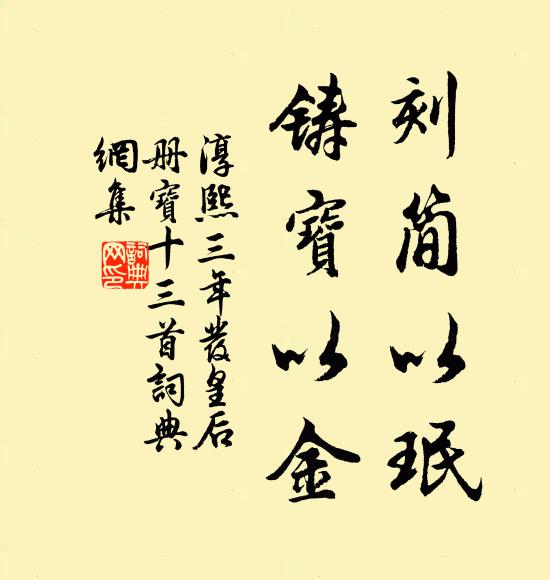 刻简以珉
铸寳以金
淳熙三年发皇后
册寳十三首词典
網集
詞典
网印